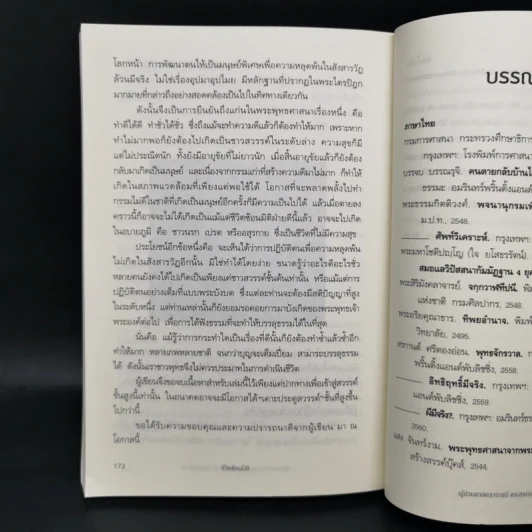 โลกหน้า การพัฒนาตนให้เป็นมนุษย์พิเศษเพื่อความหลุดพ้นในสังสารวัฏ
ล้วนมีจริง ไม่ใช่เรื่องอุปมาอุปไมย มีหลักฐานที่ปรากฏในพระไตรปิฎก
มากมายที่กล่าวถึงอย่างสอดคล้องเป็นไปในทิศทางเดียวกัน
ดังนั้นจึงเป็นการยืนยันถึงแก่นในพระพุทธศาสนาเรื่องหนึ่ง คือ
ทำดีได้ดี ทำชั่วได้ชั่ว ซึ่งถึงแม้จะทำความดีแล้วก็ต้องทำให้มาก เพราะหาก
ทำไม่มากพอก็ยังต้องไปเกิดเป็นชาวสวรรค์ในระดับล่าง ความสุขก็มี
แต่ไม่ประณีตนัก ทั้งยังมีอายุขัยที่ไม่ยาวนัก เมื่อสิ้นอายุขัยแล้วก็ยังต้อง
กลับมาเกิดเป็นมนุษย์ และเนื่องจากกรรมเก่าที่สร้างความดีมาไม่มาก ก็ทำให้
เกิดในสภาพแวดล้อมที่เพียงแค่พอใช้ได้ โอกาสที่จะพลาดพลั้งไปทำ
กรรมไม่ดีในชาติที่เกิดเป็นมนุษย์อีกครั้งก็มีความเป็นไปได้ แล้วเมื่อตายลง
คราวนี้ก็อาจจะไม่ได้เกิดเป็นแม้แต่ชีวิตซ้อนมิติฝ่ายดีนี้แล้ว อาจจะไปเกิด
ในอบายภูมิ คือ ชาวนรก เปรต หรืออสุรกาย ซึ่งเป็นชีวิตที่ไม่มีความสุข
ประโยชน์อีกข้อหนึ่งคือ จะเห็นได้ว่าการปฏิบัติตนเพื่อความหลุดพ้น
ไม่เกิดในสังสารวัฏอีกนั้น มิใช่ทำได้โดยง่าย ขนาดรู้ว่าอะไรดีอะไรชั่ว
หลายคนยังคงได้ไปเกิดเป็นเพียงแค่ชาวสวรรค์ชั้นต้นเท่านั้น หรือแม้แต่การ
ปฏิบัติตนอย่างเต็มที่แบบพระบังคบ ซึ่งแต่ละท่านจะต้องมีสติปัญญาที่สูง
ในระดับหนึ่ง แต่ท่านเหล่านั้นก็ยังยอมรอคอยการมาบังเกิดของพระพุทธเจ้า
พระองค์ต่อไป เพื่อการได้ฟังธรรมที่จะทำให้บรรลุธรรมได้ในที่สุด
นั่นคือ แม้รู้ว่าการกระทำใดเป็นเรื่องที่ดีนั้นก็ยังต้องทำซ้ำแล้วซ้ำอีก
ทำให้มาก หลายภพหลายชาติ จนกว่าบุญจะเต็มเปี่ยม สามารถบรรลุธรรม
ได้ ดังนั้นเราชาวพุทธจึงไม่ควรประมาทในการดำเนินชีวิต
ผู้เขียนจึงขอจบเนื้อหาสำหรับเล่มนี้ไว้เพียงแค่ปากทางเพื่อเข้าสู่สวรรค์
ชั้นสูงนี้เท่านั้น ในอนาคตอาจจะมีโอกาสได้ฯเคาะประตูสวรรค์ฯชั้นที่สูงขึ้น
ไปกว่านี้
ขอได้รับความขอบคุณและความปรารถนาดีจากผู้เขียน มา ณ
โอกาสนี้
172
ชีวิตซ้อนมิติ
บรรณ
ภาษาไทย
กรมการศาสนา กระทรวงศึกษาธิการ
กรุงเทพฯ: โรงพิมพ์การศาสนา
บรรจบ บรรณรุจิ. คนตายกลับบ้าน
ธรรมะ อมรินทร์พริ้นติ้งแอนด์
พระธรรมกิตติวงศ์. พจนานุกรมเพื่
ม.ป.ท., 2548.
______. ศัพท์วิเคราะห์. กรุงเทพฯ:
พระมหาโชติปญฺโญ (ใจ ยโสธรรัตน์).
สมถและวิปัสสนากัมมัฏฐาน ๔ ยุค
พระสิริมังคลาจารย์. จกฺกวาฬทีปนี. พิม
แห่งชาติ กรมศิลปากร, 2548.
พระอริยคุณาธาร. ทิพยอำนาจ. พิมพ์
วิทยาลัย, 2495.
สรกานต์ ศรีตองอ่อน. พุทธจักรวาล. ก
พริ้นติ้งแอนด์พับลิชชิ่ง, 2550.
______. อิทธิฤทธิ์มีจริง. กรุงเทพฯ:
แอนด์พับลิชชิ่ง, 2559.
______. ผีมีจริง?. กรุงเทพฯ: อมรินทร์ธร
2560.
แสง จันทร์งาม. พระพุทธศาสนาจากพระ
สร้างสรรค์บุ๊คส์, 2544.
ผู้ช่วยศาสตราจารย์ ดร.สรก